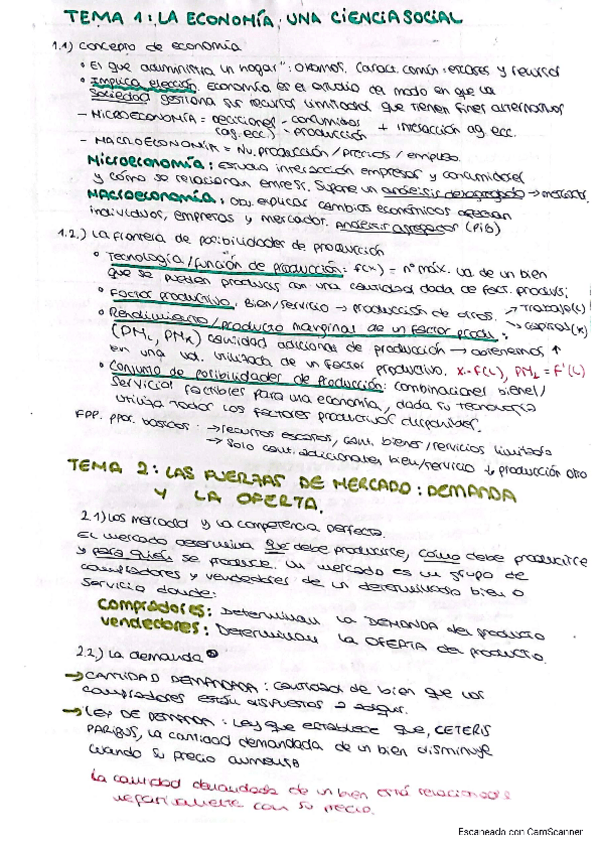 TEMA 1: LA ECONOMÍA, UNA CIENCIA SOCIAL
1.1) Concepto de economía
• El que administra un hogar": oikonomos. Caract. común: escasez y recursos
• Implica elección. Economía es el estudio del modo en que la
sociedad gestiona sus recursos limitados que tienen fines alternativos
- MICROECONOMÍA = decisiones - consumidores + interacción ag. ecc.
(ag. ecc.) - producción
- MACROECONOMÍA = Nu. producción / precios / empleo.
Microeconomía: estudia interacción empresas y consumidores
y cómo se relacionan entre sí. Supone un análisis desagregado → mercados.
Macroeconomía: obj. explicar cambios económicos afectan
individuos, empresas y mercados. Análisis agregados (PIB)
1.2.) La frontera de posibilidades de producción
• Tecnología / función de producción: f(x) = nº máx. ud. de un bien
que se pueden producir con una cantidad dada de fact. produc.
• Factor productivo. Bien/servicio → producción de otros. → Trabajo (L)
→ capital (K)
• Rendimiento / producto marginal de un factor produ.:
(PML, PMK) cantidad adicional de producción → obtenemos ↑
en una ud. utilizada de un factor productivo. x = f(L), PML = f'(L)
• Conjunto de posibilidades de Producción: combinaciones bienes/
servicios factibles para una economía, dada su tecnología
utiliza todos los factores productivos disponibles.
FPP. básicos: → recursos escasos, cant. bienes/servicios limitada
→ Solo cant. adicionales bien/servicio ↓ producción otro
TEMA 2: LAS FUERZAS DE MERCADO: DEMANDA
Y LA OFERTA.
2.1) Los mercados y la competencia perfecta.
El mercado determina qué debe producirse, cómo debe producirse
y para quién se produce. Un mercado es un grupo de
compradores y vendedores de un determinado bien o
servicio donde:
Compradores: Determinan la DEMANDA del producto
Vendedores: Determinan la OFERTA del producto.
2.2.) La demanda
→ CANTIDAD DEMANDADA: cantidad de bien que los
compradores están dispuestos a adqui.
→ LEY DE DEMANDA: Ley que establece que, CETERIS
PARIBUS, la cantidad demandada de un bien disminuye
cuando su precio aumenta
La cantidad demandada de un bien está relacionada
negativamente con su precio.
Escaneado con CamScanner